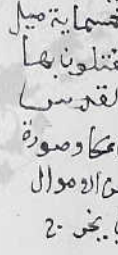 خمسماية ميل
يقتلون بها
القدس
عكا وصورة
من الاموال
يخرج